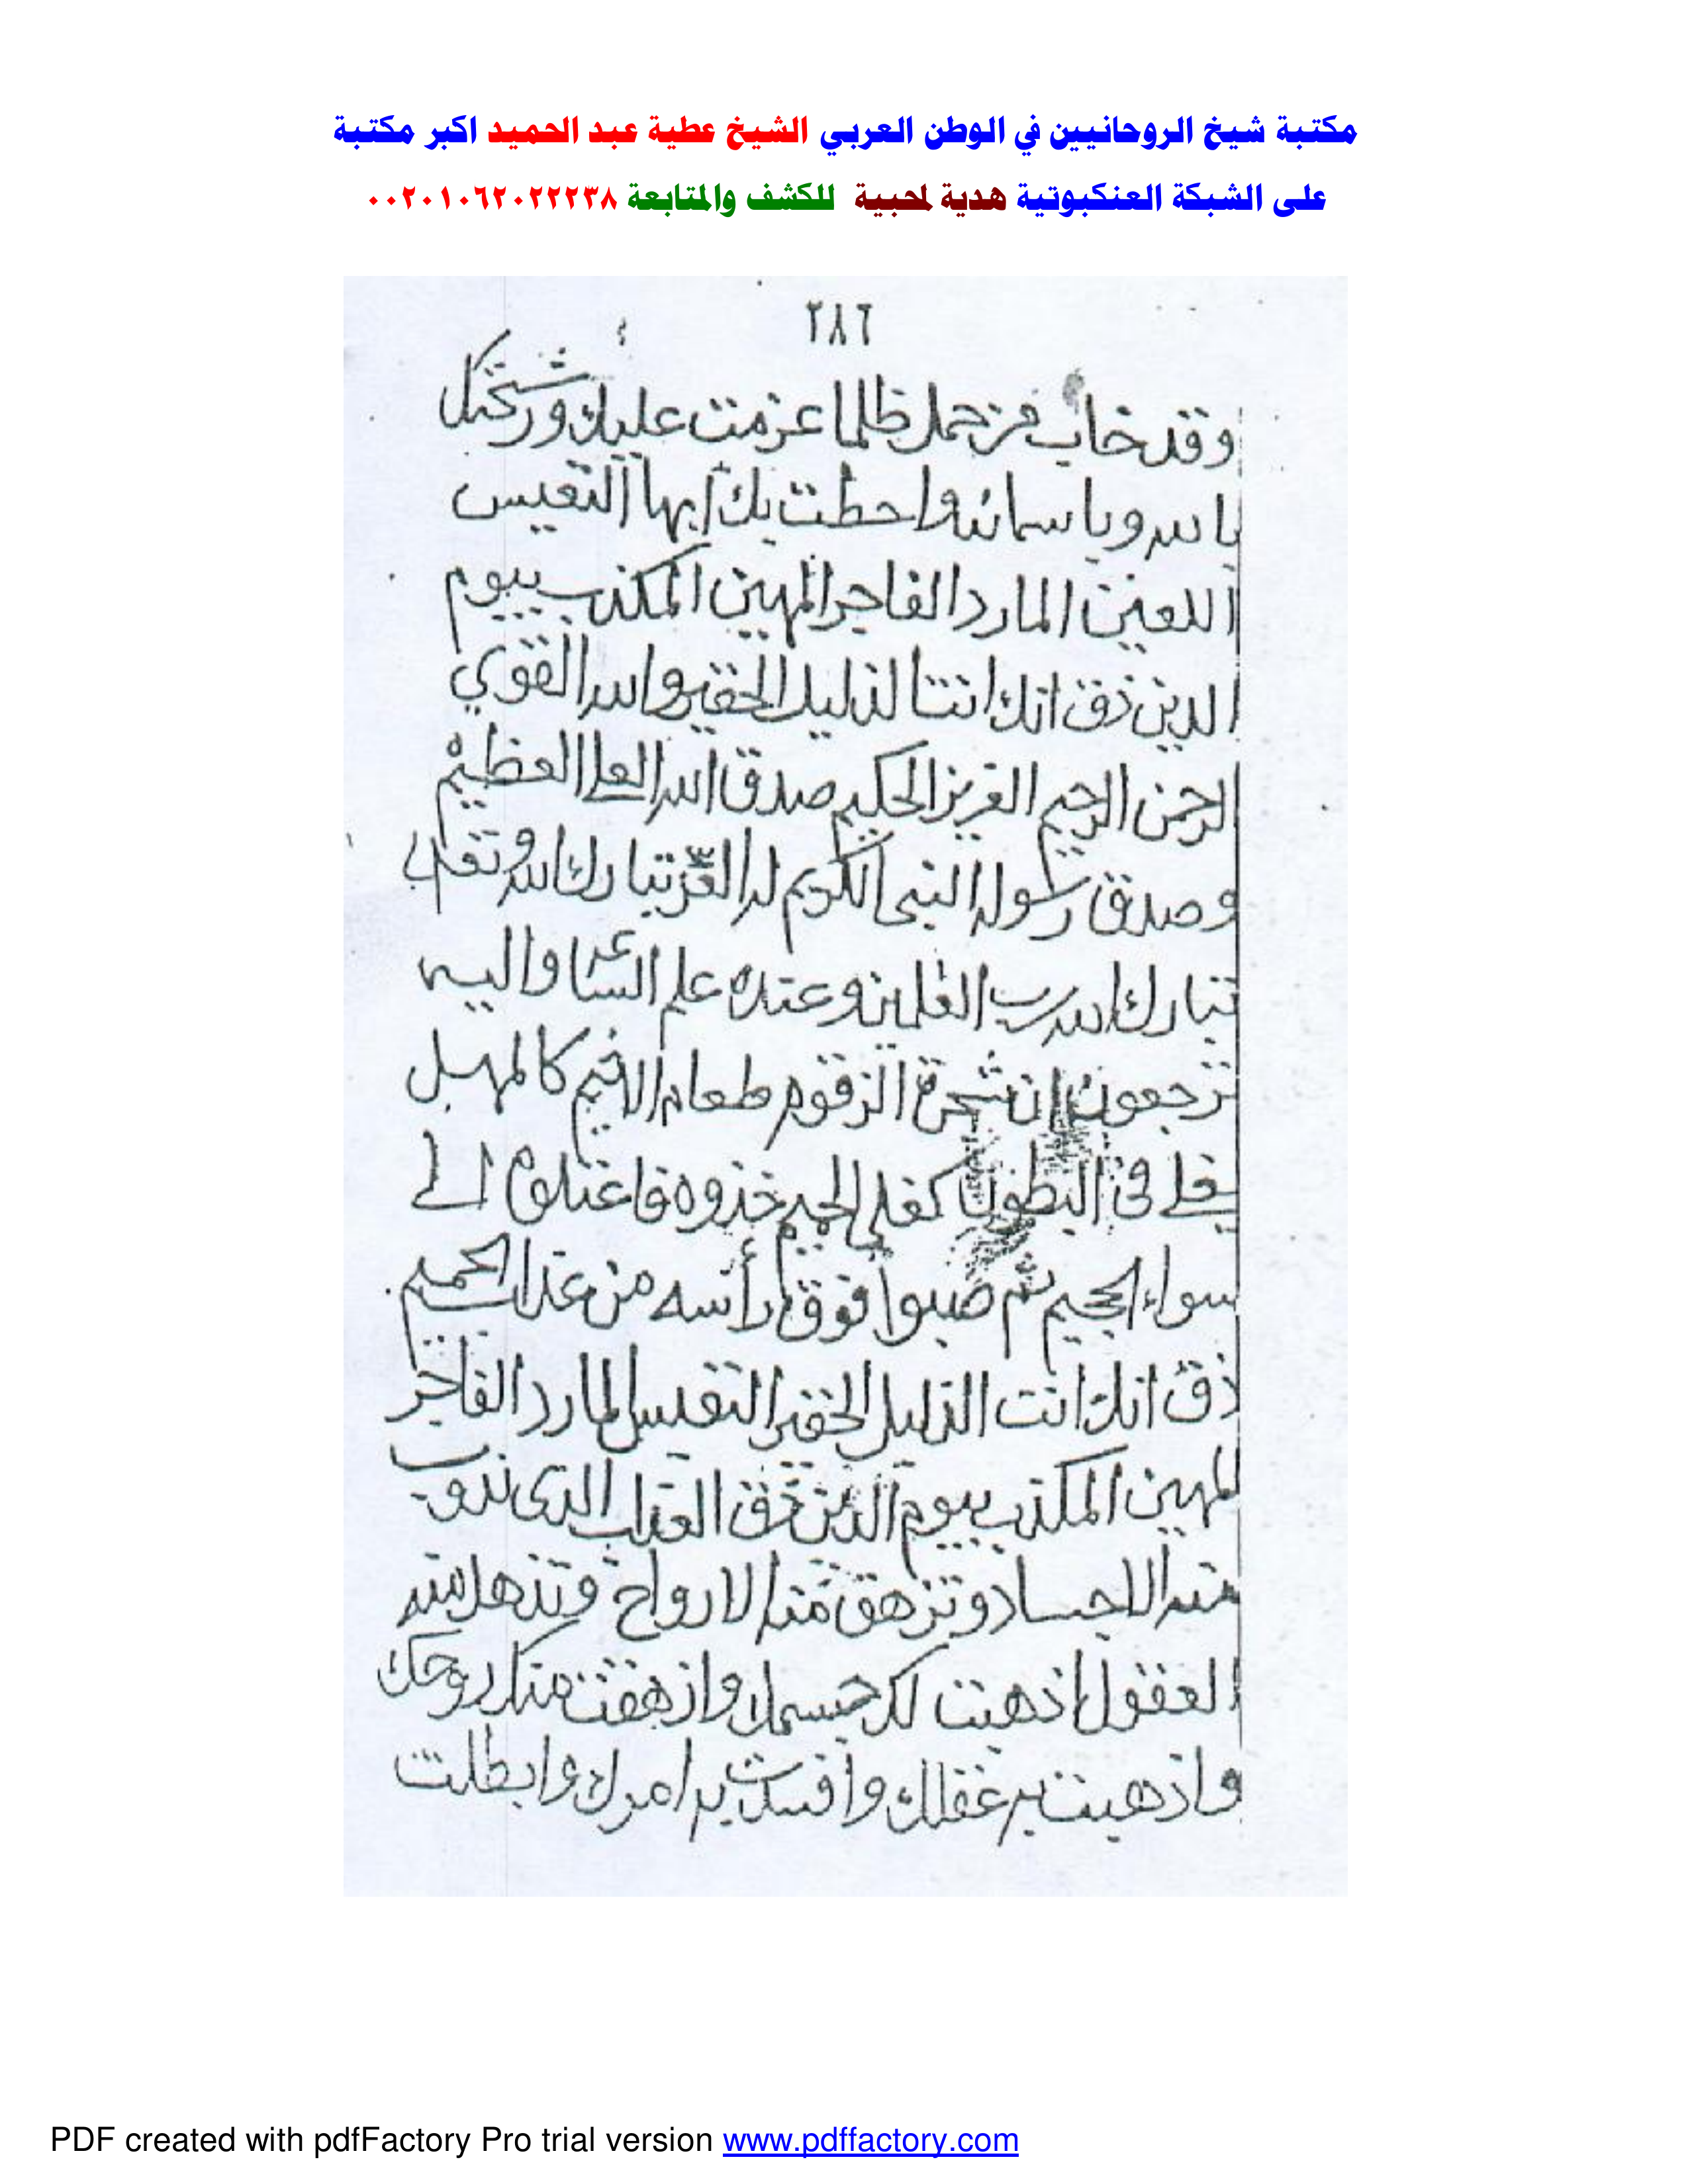 مكتبة شيخ الروحانيين في الوطن العربي الشيخ عطية عبد الحميد اكبر مكتبة
على الشبكة العنكبوتية هدية لمحبية للكشف والمتابعة ٠٠٢٠١٠٦٢٠٢٢٢٣٨
٢٨٦
وقد خاب من حمل ظلما عزمت عليك
بالله وباسمائه واحطت بك ايها التعيس
اللعين المارد الفاجر المهين المكذب بيوم
الدين ذق انك انت الذليل الحقير والله القوي
الرحمن الرحيم العزيز الحكيم صدق الله العلي العظيم
وصدق رسوله النبي الكريم له العز تبارك الله وتعالى
تبارك الله رب العلمين وعنده علم الساعة واليه
ترجعون ان شجرة الزقوم طعام الاثيم كالمهل
يغلي في البطون كغلي الحميم خذوه فاعتلوه الى
سواء الجحيم ثم صبوا فوق رأسه من عذاب الحميم
ذق انك انت الذليل الحقير التعيس المارد الفاجر
المهين المكذب بيوم الدين ذق العذاب الذي تذوب
منه الاجساد وتزهق منه الارواح وتذهل منه
العقول اذهبت لك جسمك وازهقت منك روحك
واذهبت به عقلك وافسدت به امرك وابطلت
PDF created with pdfFactory Pro trial version www.pdffactory.com